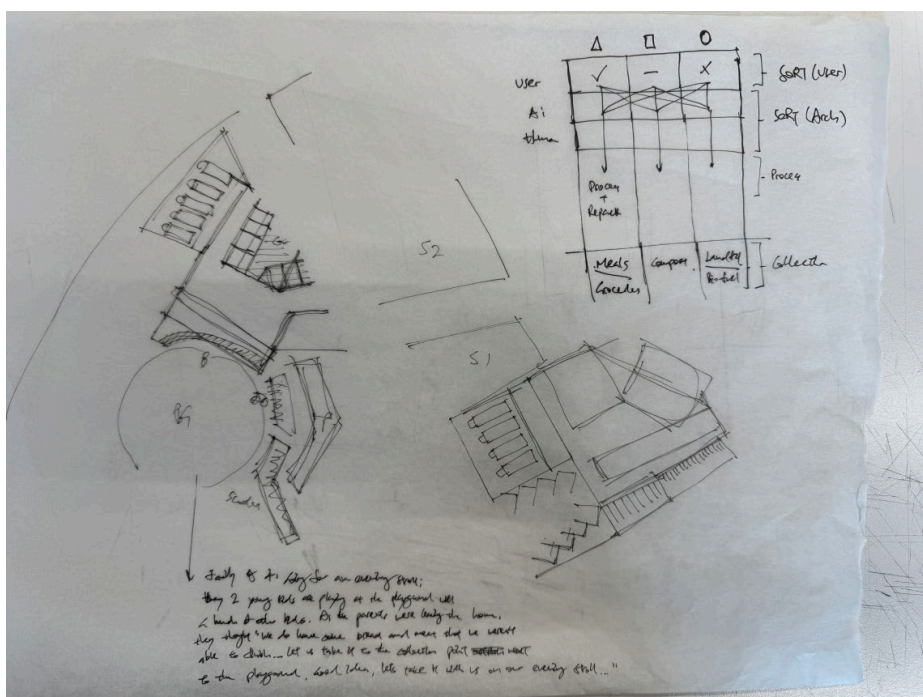 User
✓ – X
SORT (User)
Ai
SORT (Arch)
Process
Process
+
Repack
Meals
Groceries
Compost
Landfill
Collection
S2
S1
B
PG
Family of 4 for an evening stroll;
2 young kids are playing at the playground with
a bunch of other kids. As the parents were leaving the home,
they thought "we do have some bread and that we weren't
able to finish... let us take it to the collection point next
to the playground. Good idea, let's take it with us on our evening stroll..."